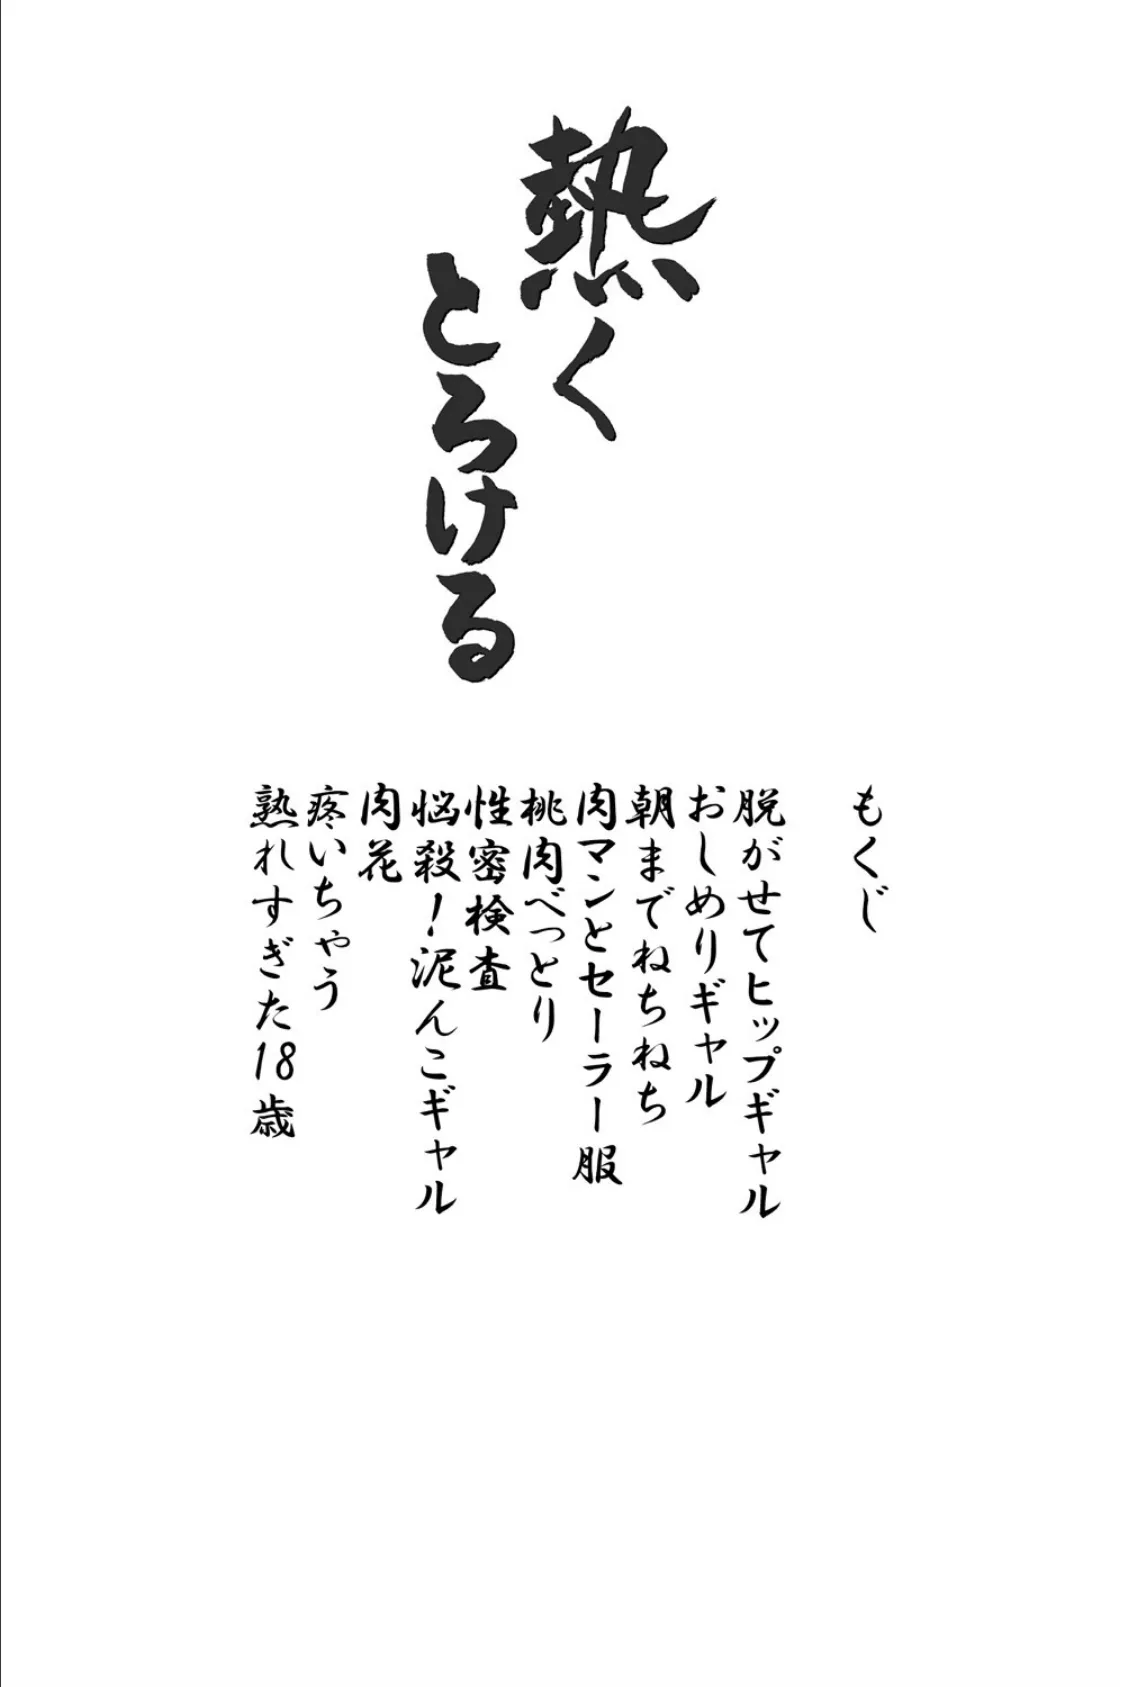 熱く
とろける
もくじ
脱がせてヒップギャル
おしめりギャル
朝までねちねち
肉マンとセーラー服
桃肉べっとり
性密検査
悩殺!泥んこギャル
肉花
疼いちゃう
熟れすぎた18歳